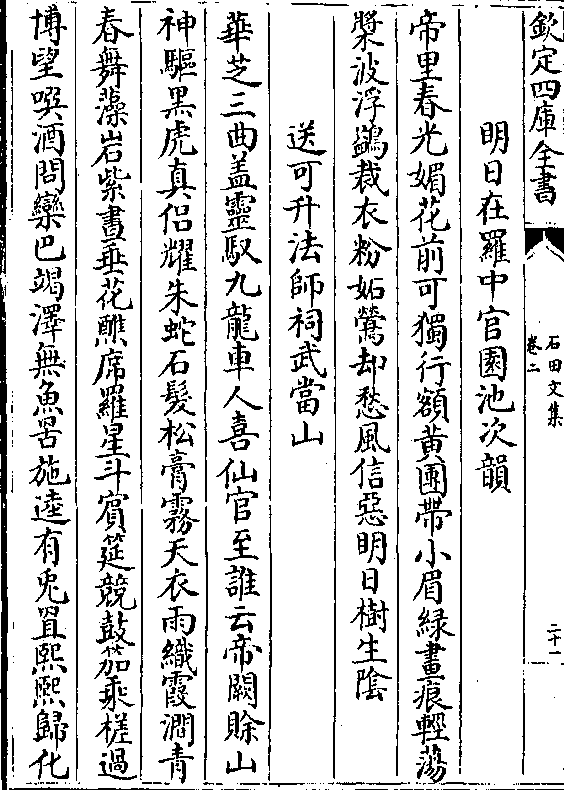 欽定四庫全書
石田文集
卷二
二十一
明日在羅中官園池次韻
帝里春光媚花前可獨行額黄團帶小眉緑畫痕輕蕩
槳波浮鷁裁衣粉妬鶯却愁風信惡明日樹生陰
送可升法師祠武當山
華芝三曲盖靈馭九龍車人喜仙官至誰云帝闕賒山
神驅黒虎真侣耀朱蛇石髮松膏霧天衣雨織霞澗青
春舞藻岩紫晝垂花醮席羅星斗賓筵競鼓笳乘槎過
博望噀酒問欒巴竭澤無魚罟施逵有兎罝熙熙歸化